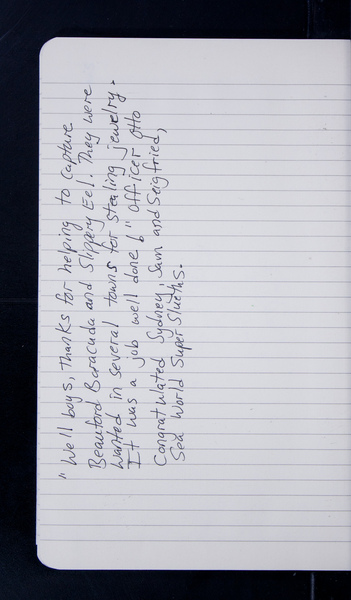 "Well boys, thanks for helping to capture
Beauford Baracuda and Slippery Eel. They were
wanted in several towns for stealing jewelry.
It was a job well done!" Officer Otto
Congratulated Sydney, Sam and Seigfried,
Sea World Super Slueths.